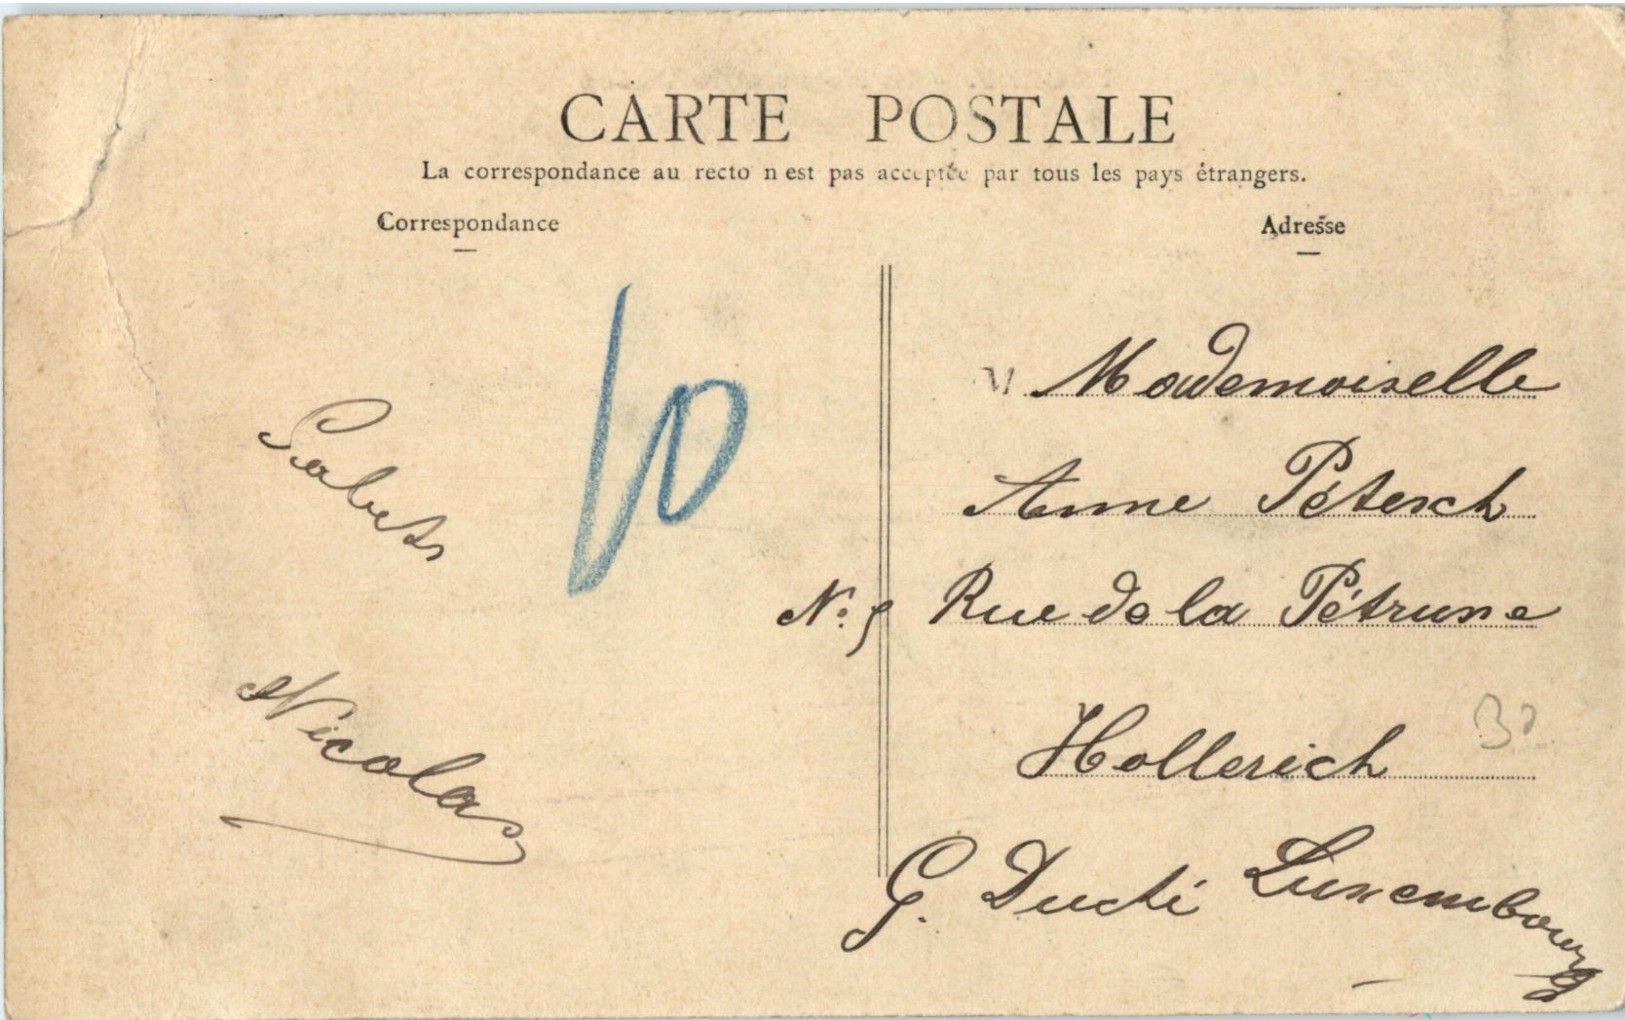 CARTE POSTALE
La correspondance au recto n'est pas acceptée par tous les pays étrangers.
Correspondance
Adresse
10
Nicolas
Mademoiselle
Anne Pétesch
No. 5 Rue de la Pétrusse
Hollerich
30
G. Duché Luxembourg